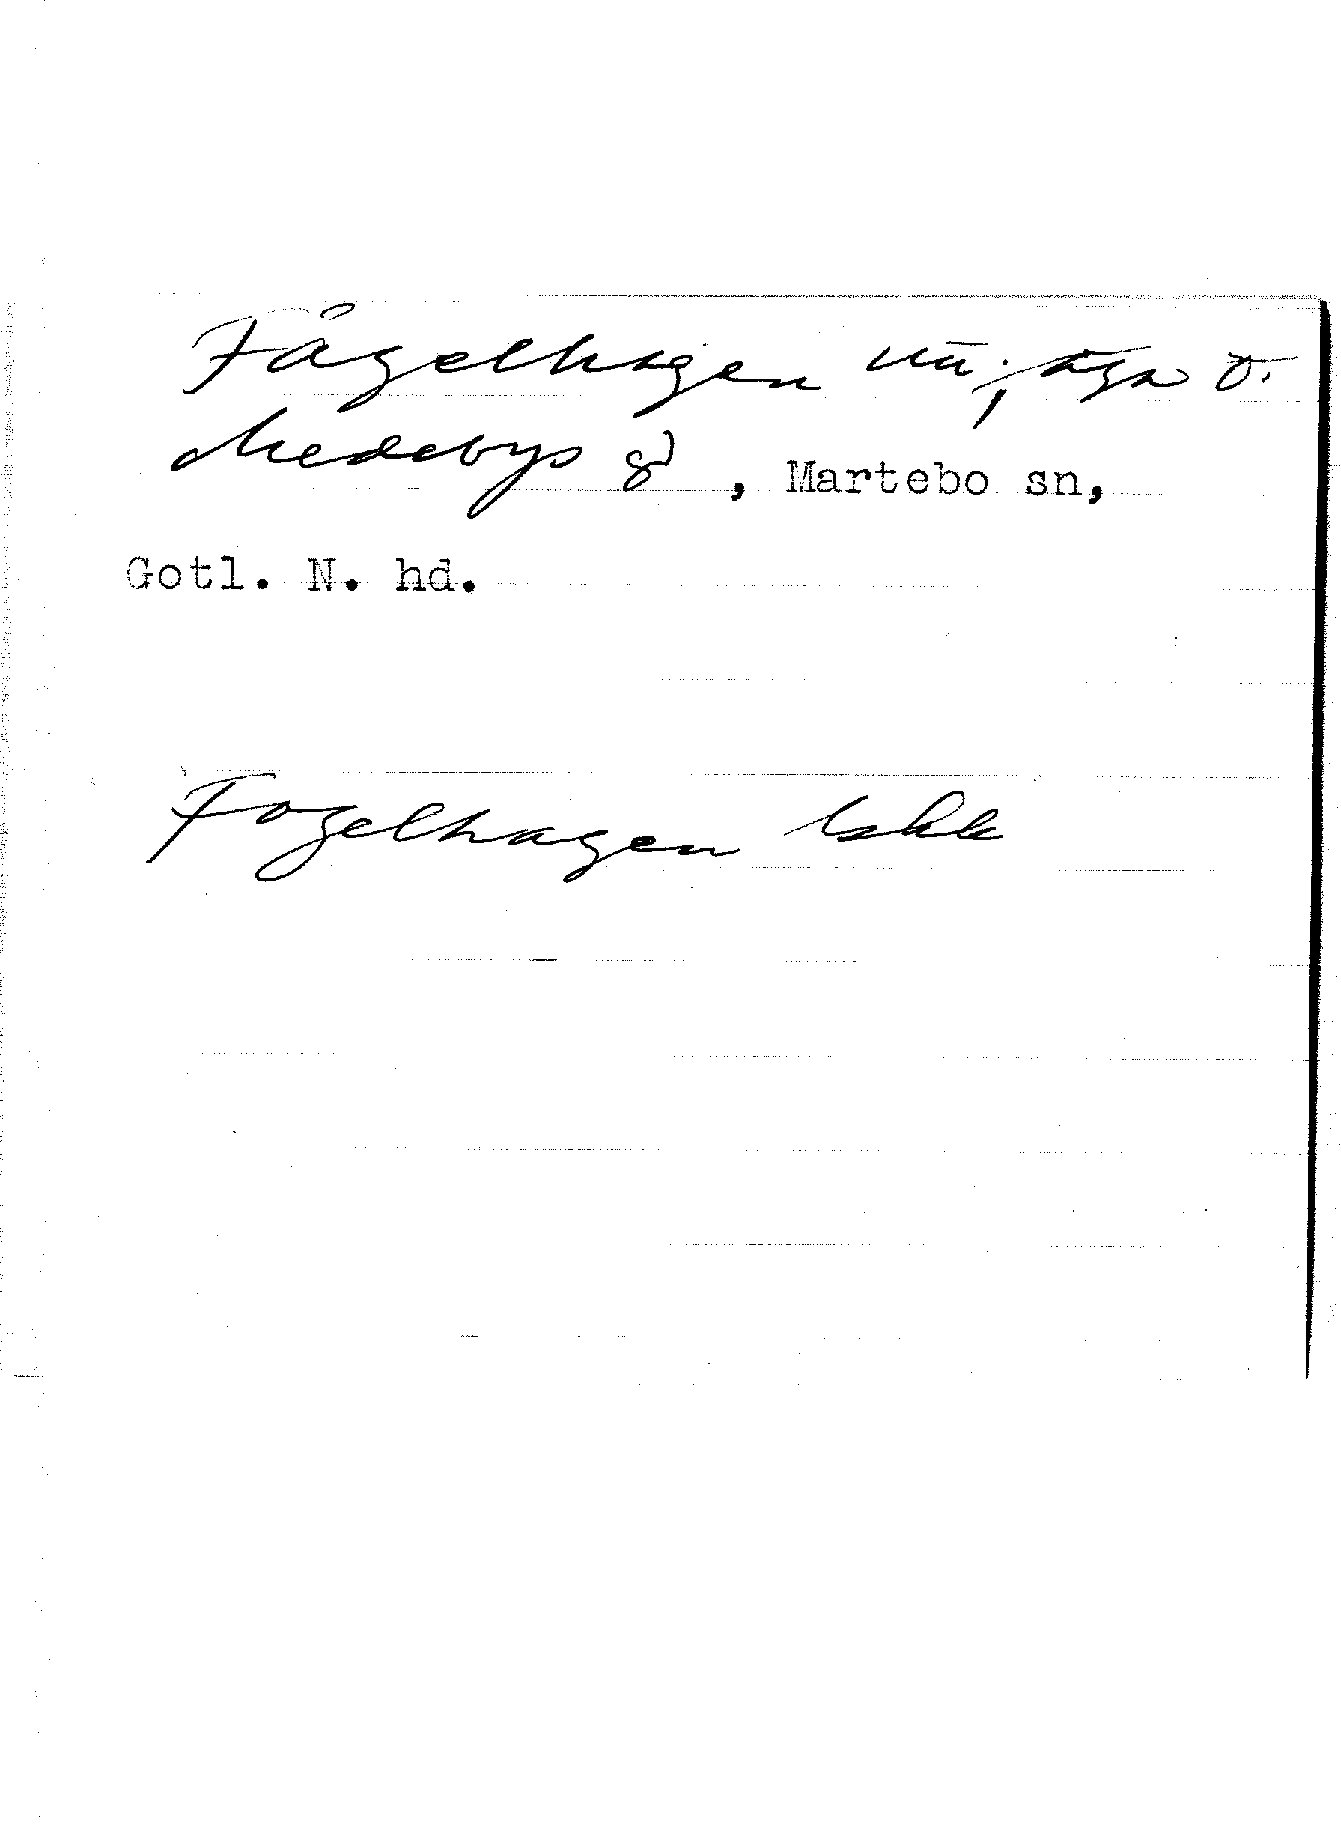 Fågelhagen
Medebys gd, Martebo sn,
Gotl. N. hd.
Fogelhagen lskk